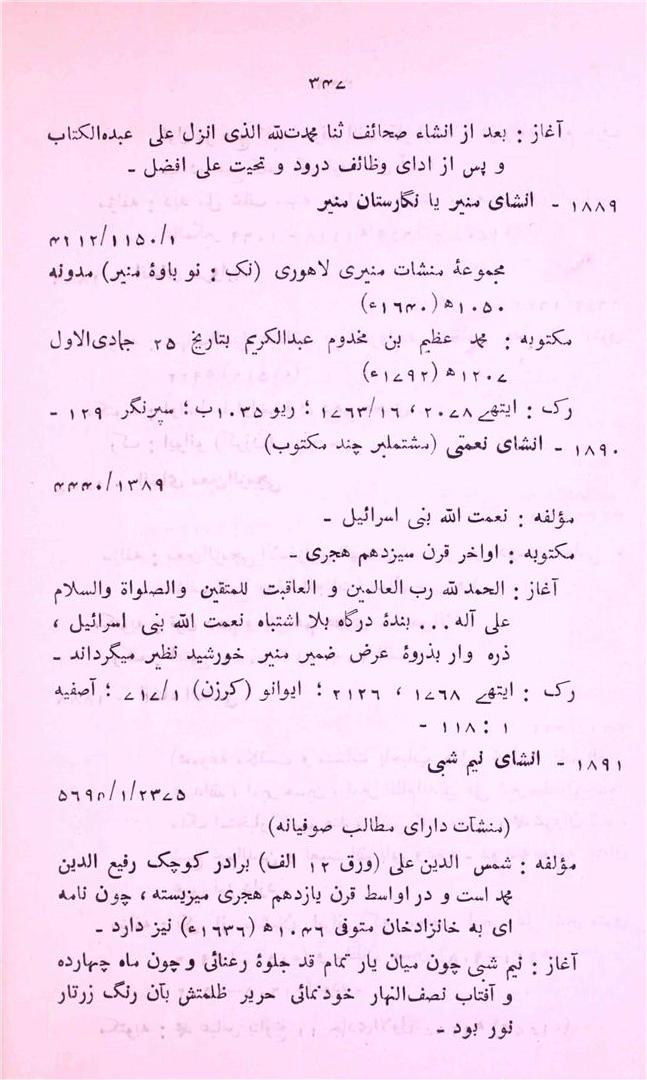 ۳۴۷
آغاز : بعد از انشاء صحائف ثنا محمدت‌لله الذی انزل علی عبده‌الکتاب
و پس از ادای وظائف درود و تحیت علی افضل ـ
۱۸۸۹ - انشای منیر یا نگارستان منیر
۴۲۱۲/۱۱۵۰/۱
مجموعهٔ منشات منیری لاهوری (نک : نو باوهٔ منیر) مدونه
۱۰۵۰ھ (۱۶۴۰ء)
مکتوبه : محمد عظیم بن مخدوم عبدالکریم بتاریخ ۲۵ جمادی‌الاول
۱۲۰۷ھ (۱۷۹۲ء)
رک : ایتھے ۲۰۷۸ ، ۱۷۶۳/۱۶ ؛ ریو ۱۰۳۵ب ؛ سپرنگر ۱۲۹ -
۱۸۹۰ - انشای نعمتی (مشتملبر چند مکتوب)
۴۴۴۰/۱۳۸۹
مؤلفه : نعمت الله بنی اسرائیل ـ
مکتوبه : اواخر قرن سیزدهم هجری ـ
آغاز : الحمدلله رب العالمین و العاقبت للمتقین والصلواة والسلام
علی آله... بندهٔ درگاه بلا اشتباه نعمت الله بنی اسرائیل ،
ذره وار بذروهٔ عرض ضمیر منیر خورشید نظیر میگرداند ـ
رک : ایتھے ۱۷۶۸ ، ۲۱۲۶ ؛ ایوانو (کرزن) ۷۱۷/۱ ؛ آصفیه
۱ : ۱۱۸ -
۱۸۹۱ - انشای نیم شبی
۵۶۹۴/۱/۲۳۷۵
(منشآت دارای مطالب صوفیانه)
مؤلفه : شمس الدین علی (ورق ۱۲ الف) برادر کوچک رفیع الدین
محمد است و در اواسط قرن یازدهم هجری میزیسته ، چون نامه
ای به خانزادخان متوفی ۱۰۴۶ھ (۱۶۳۶ء) نیز دارد ـ
آغاز : نیم شبی چون میان یار تمام قد جلوهٔ رعنائی و چون ماه چهارده
و آفتاب نصف‌النهار خودنمائی حریر ظلمتش بآن رنگ زرتار
نور بود ـ